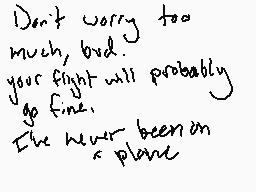 Don't worry too
much, bud.
your flight will probably
go fine.
I've never been on
a plane